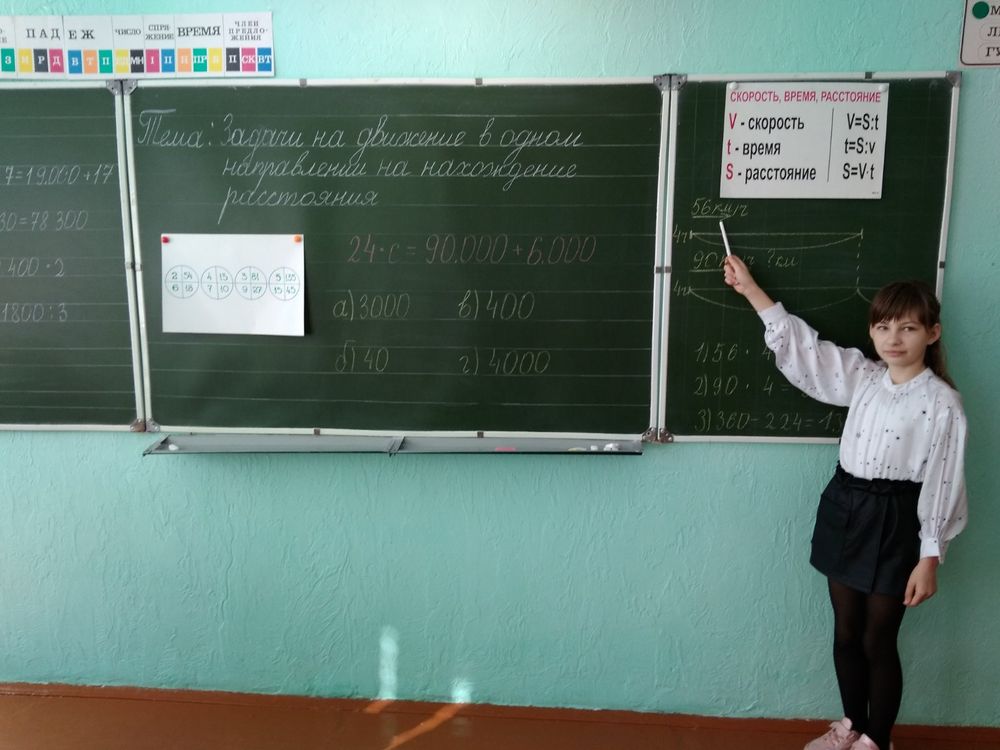 ПАДЕЖ ЧИСЛО СПРЯЖЕНИЕ ВРЕМЯ ЧЛЕН ПРЕДЛОЖЕНИЯ
З И Р Д В Т П ЕД МН I П Н ПР Б П СК ВТ
7=19.000+17
30=78 300
400·2
1800:3
Тема: Задачи на движение в одном
направлении на нахождение
расстояния
24·с=90.000+6.000
а)3000 в)400
б)40 г)4000
2 54 4 15 3 81 5 135
6 18 7 10 9 27 15 45
СКОРОСТЬ, ВРЕМЯ, РАССТОЯНИЕ
V - скорость V=S:t
t - время t=S:v
S - расстояние S=V·t
56км/ч
4ч
90 ?км
4ч
1)56· 4
2)90 · 4=
3)360-224=13
М
ЛЕ
ГУ